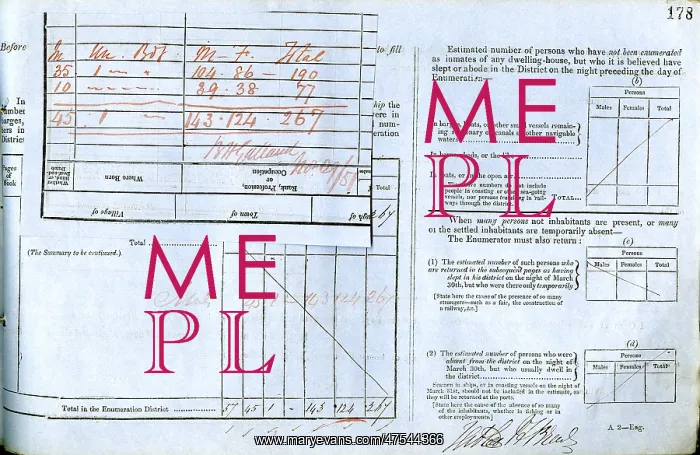 178
Before
to fill
In Un. Bdg M - F. Total
35 1 - - 104 . 86 - 190
10 - - - 39 . 38 77
45 . 1 - 143 . 124 . 267
Where Born
Rank, Profession,
or
Occupation
Village of
Town of
Total
267
Total
(The Summary to be continued.)
Total in the Enumeration District 57 45 - 143 124 267
Estimated number of persons who have not been enumerated
as inmates of any dwelling-house, but who it is believed have
slept or abode in the District on the night preceding the day of
Enumeration:—
(b)
Persons
Males Females Total
In barges, boats, or other small vessels remain-
ing in canals or other navigable
waters
In barns, sheds, or the like
In tents, or in the open air
numbers do not include
people in coasting or other sea-going
vessels, nor persons travelling in rail-
ways through the district. TOTAL
When many persons not inhabitants are present, or many
of the settled inhabitants are temporarily absent—
The Enumerator must also return :
(c)
Persons
Males Females Total
(1) The estimated number of such persons who
are returned in the subsequent pages as having
slept in his district on the night of March
30th, but who were there only temporarily
[State here the cause of the presence of so many
strangers—such as a fair, the construction of
a railway, &c.]
(d)
Persons
Males Females Total
(2) The estimated number of persons who were
absent from the district on the night of
March 30th, but who usually dwell in
the district
Seamen in ships, or in coasting vessels on the night of
March 31st, should not be included in the estimate, as
they will be returned at the ports.
[State here the cause of the absence of so many
of the inhabitants, whether in fishing or in
other employments.]
A 2—Eng.
ME
PL
ME
PL
www.maryevans.com/47544366